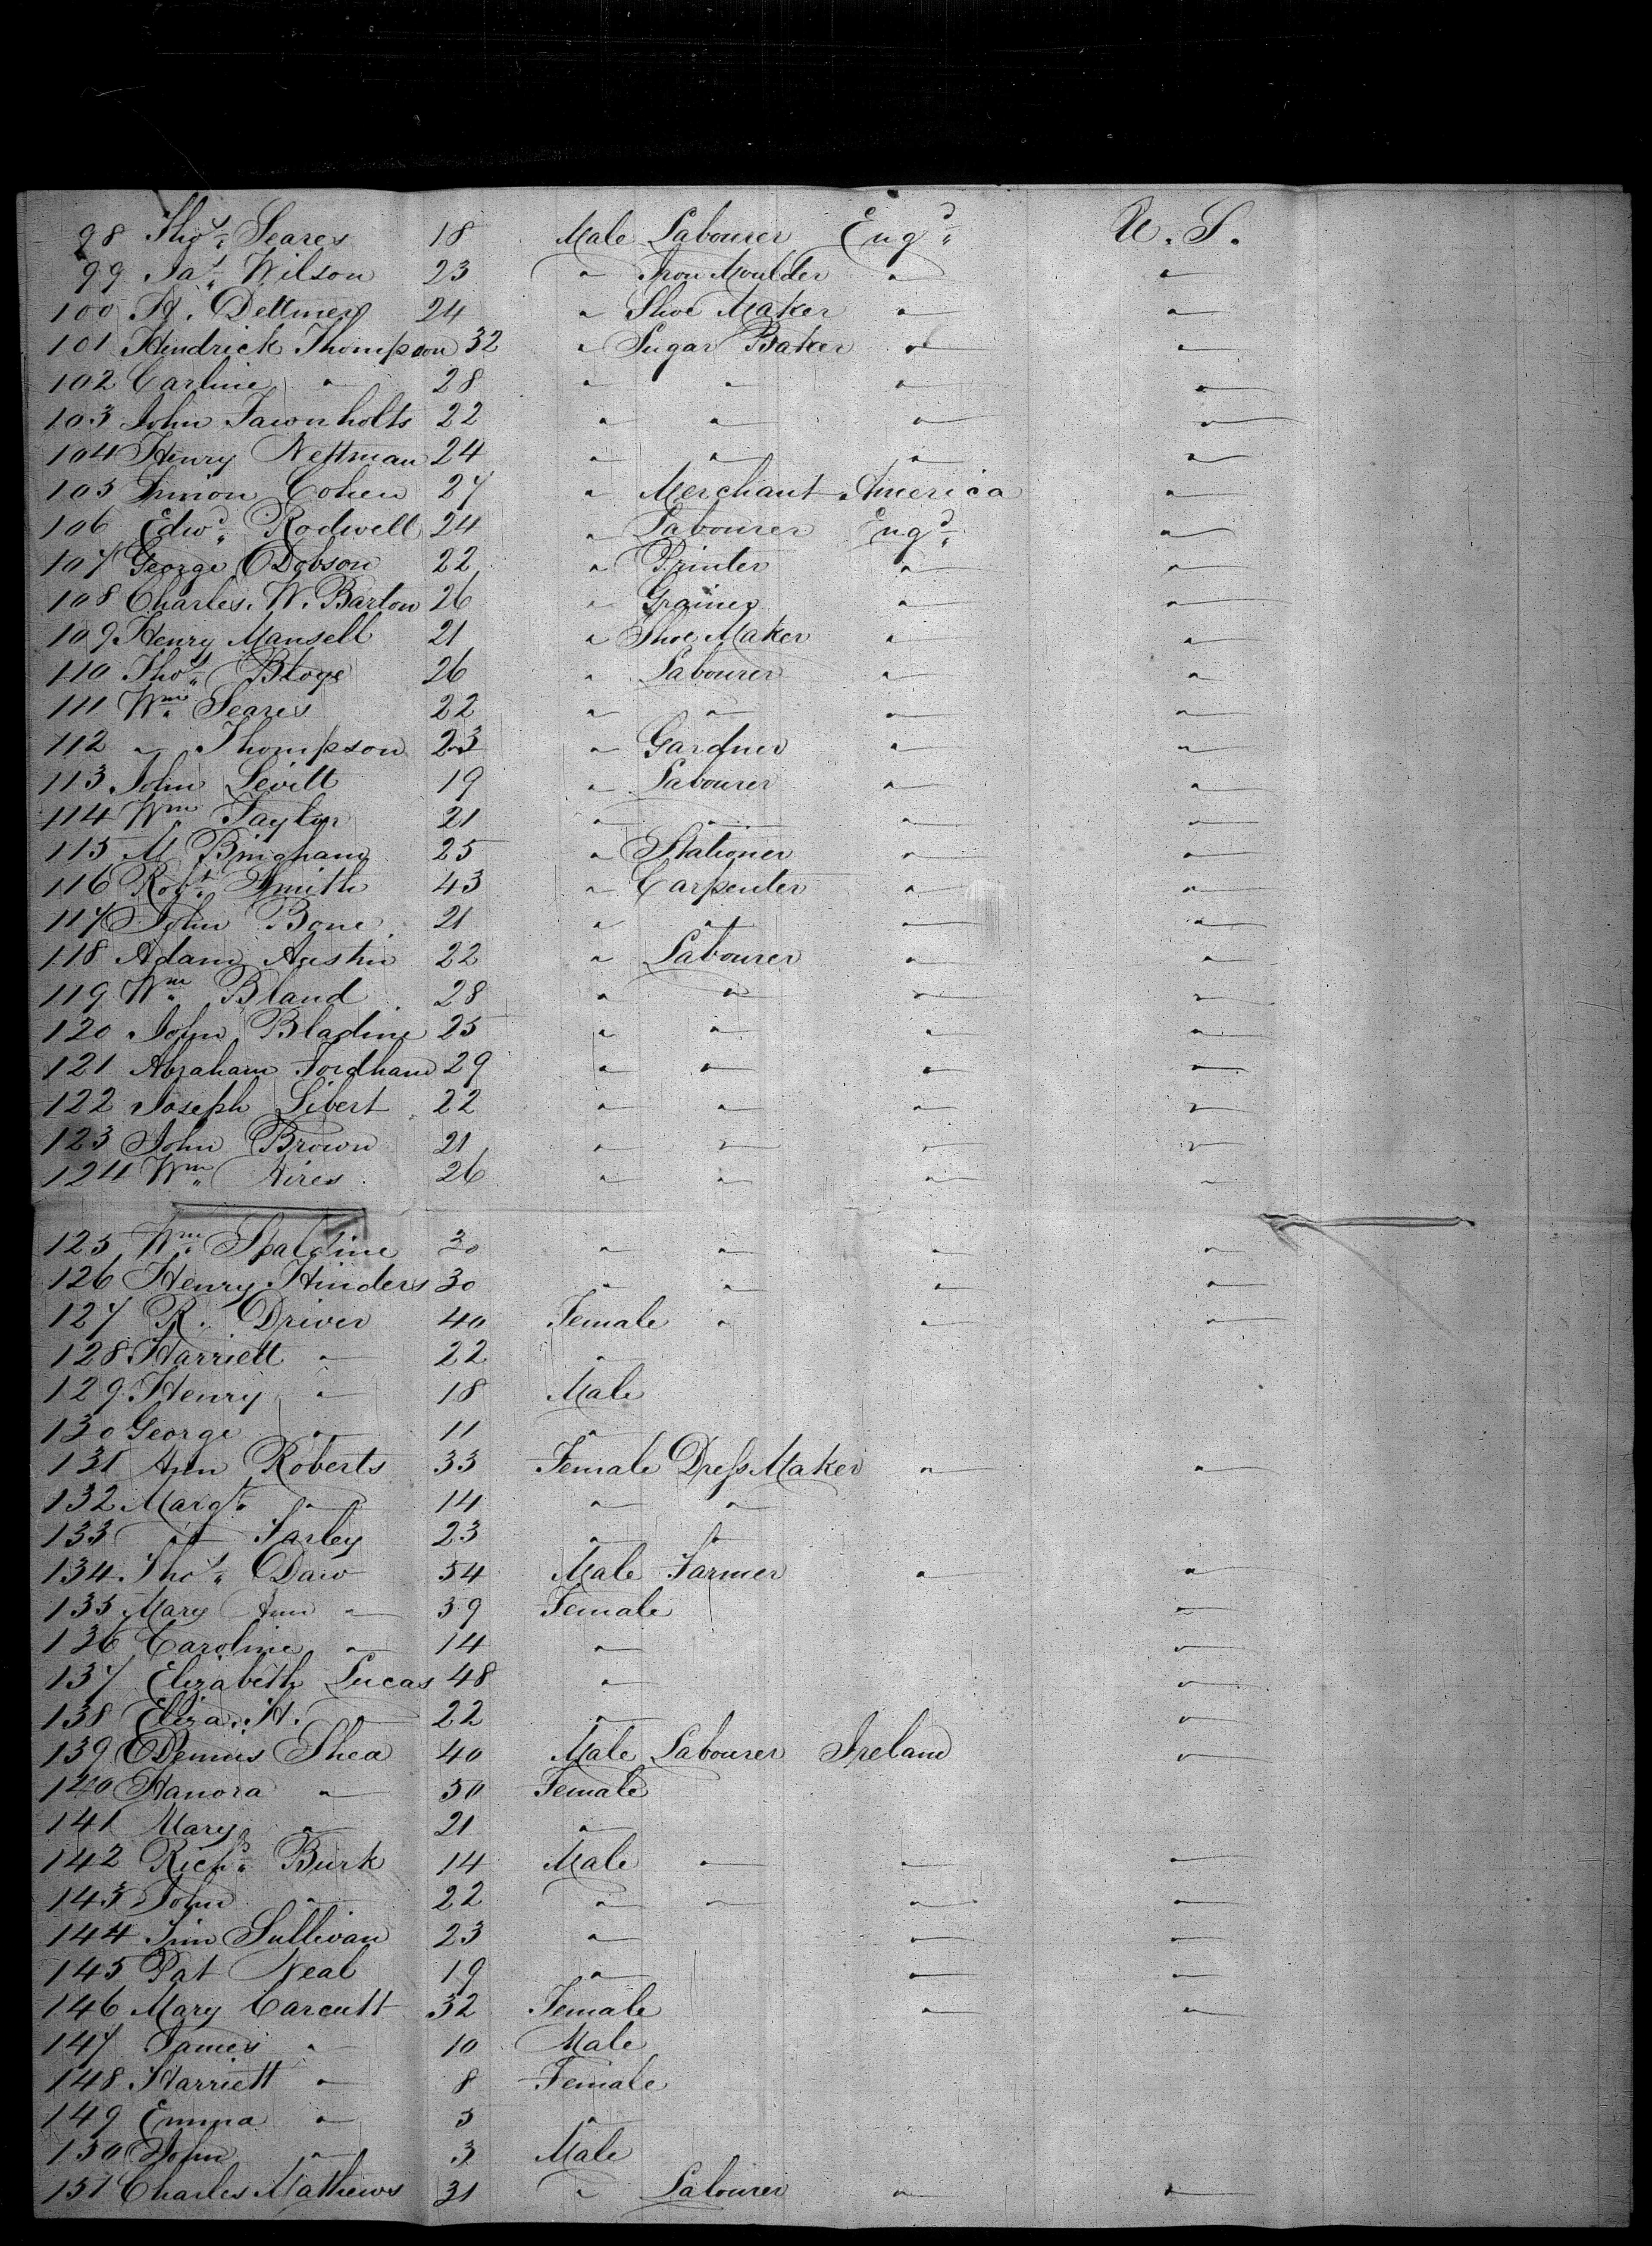 98 Thos. Seares 18 Male Labourer Engd. U. S.
99 Jas. Wilson 23 " Iron Moulder " "
100 H. Dettmer 24 " Shoe Maker " "
101 Hendrick Thompson 32 " Sugar Baker " "
102 Carline " 28 " " " "
103 John Fawnholts 22 " " " "
104 Henry Nettman 24 " " " "
105 Simon Cohen 27 " Merchant America "
106 Edwd. Rodwell 24 " Labourer Engd. "
107 George Dobson 22 " Printer " "
108 Charles. W. Barton 26 " Grainer " "
109 Henry Mansell 21 " Shoe Maker " "
110 Thos. Bloye 26 " Labourer " "
111 Wm. Seares 22 " " " "
112 " Thompson 23 " Gardner " "
113 John Levitt 19 " Labourer " "
114 Wm Taylor 21 " " " "
115 M Bingham 25 " Stationer " "
116 Robt. Smith 43 " Carpenter " "
117 John Bone 21 " " " "
118 Adam Austin 22 " Labourer " "
119 Wm. Bland 28 " " " "
120 John Bladine 25 " " " "
121 Abraham Fordham 29 " " " "
122 Joseph Libert 22 " " " "
123 John Brown 21 " " " "
124 Wm. Aires 26 " " " "
125 Wm. Spaldine 30 " " " "
126 Henry Hinders 30 " " " "
127 R. Driver 40 Female " " "
128 Harriett " 22 "
129 Henry " 18 Male
130 George " 11 "
131 Ann Roberts 33 Female Dress Maker " "
132 Margt. " 14 " "
133 " Farley 23 " "
134 Thos. Daw 54 Male Farmer " "
135 Mary Ann " 39 Female "
136 Caroline " 14 " "
137 Elizabeth Lucas 48 " "
138 Eliza. H. " 22 " "
139 Dennis Shea 40 Male Labourer Ireland "
140 Hanora " 50 Female
141 Mary " 21 "
142 Richd. Burk 14 Male " " "
143 John " 22 " " " "
144 Jim Sullivan 23 " " "
145 Pat Neal 19 " " "
146 Mary Carcutt 32 Female " "
147 James " 10 Male
148 Harriett " 8 Female
149 Emma " 5 "
150 John " 3 Male
151 Charles Mathews 31 " Labourer " "